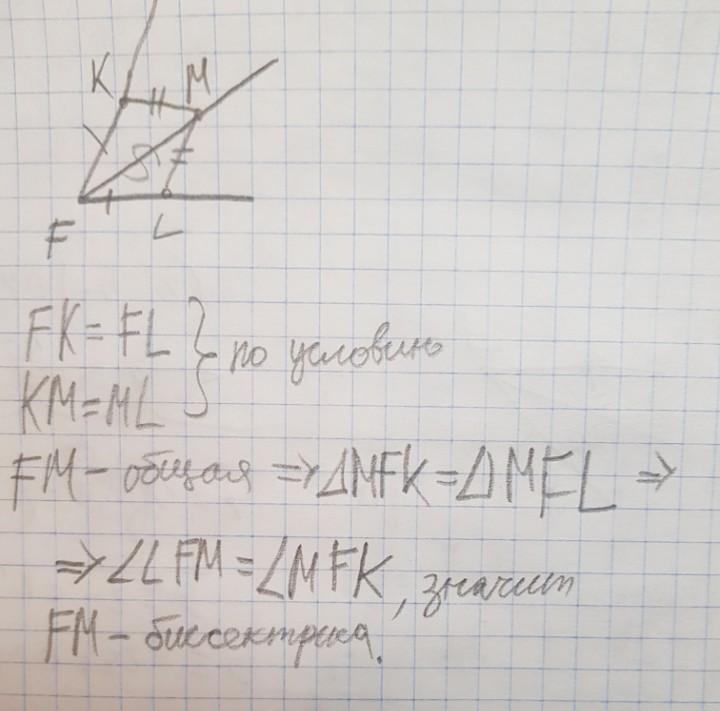 K M
F L
FK = FL } по условию
KM = ML
FM - общая => ΔMFK = ΔMFL =>
=> ∠LFM = ∠MFK, значит
FM - биссектриса.